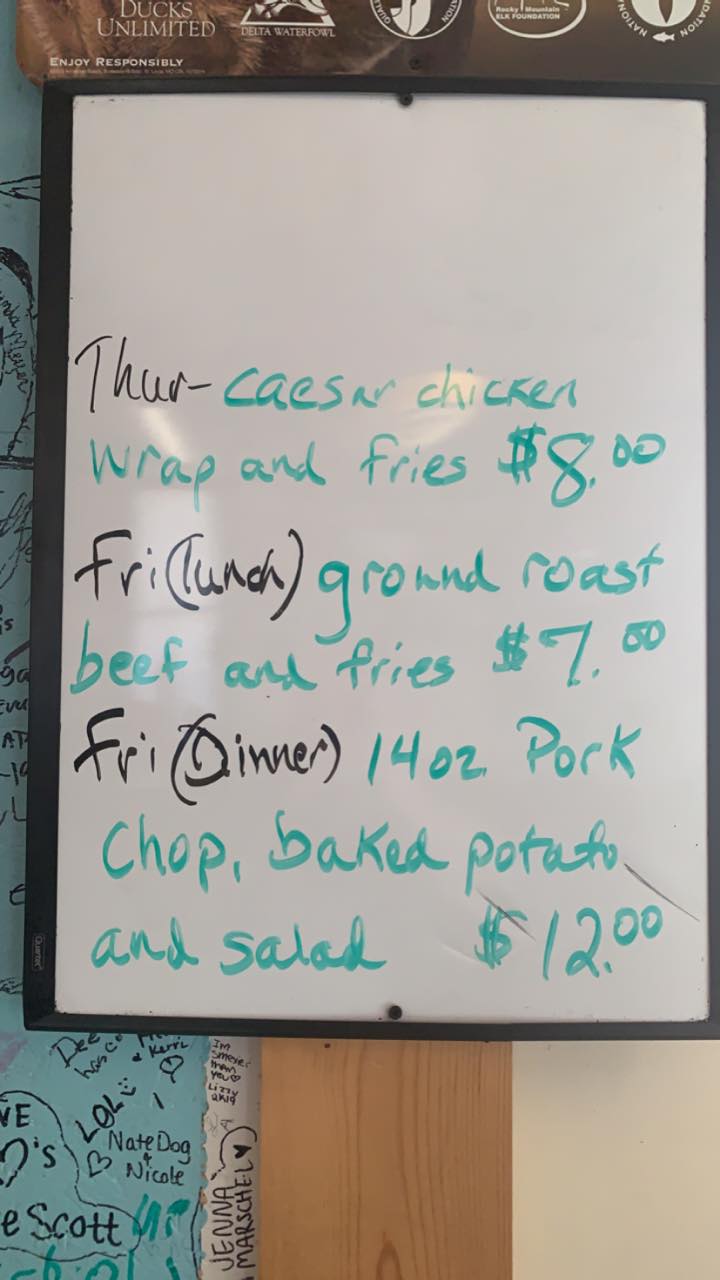 DUCKS
UNLIMITED
DELTA WATERFOWL
Rocky Mountain
ELK FOUNDATION
ENJOY RESPONSIBLY
Thur- caesar chicken
wrap and fries $8.00
Fri (lunch) ground roast
beef and fries $7.00
Fri (Dinner) 14oz. Pork
Chop, baked potato
and salad $12.00
Quartet
Kerri
I'm
smexier
than
you
Lizzy
LOL
NateDog
&
Nicole
e Scott
JENNA
MARSCHEL